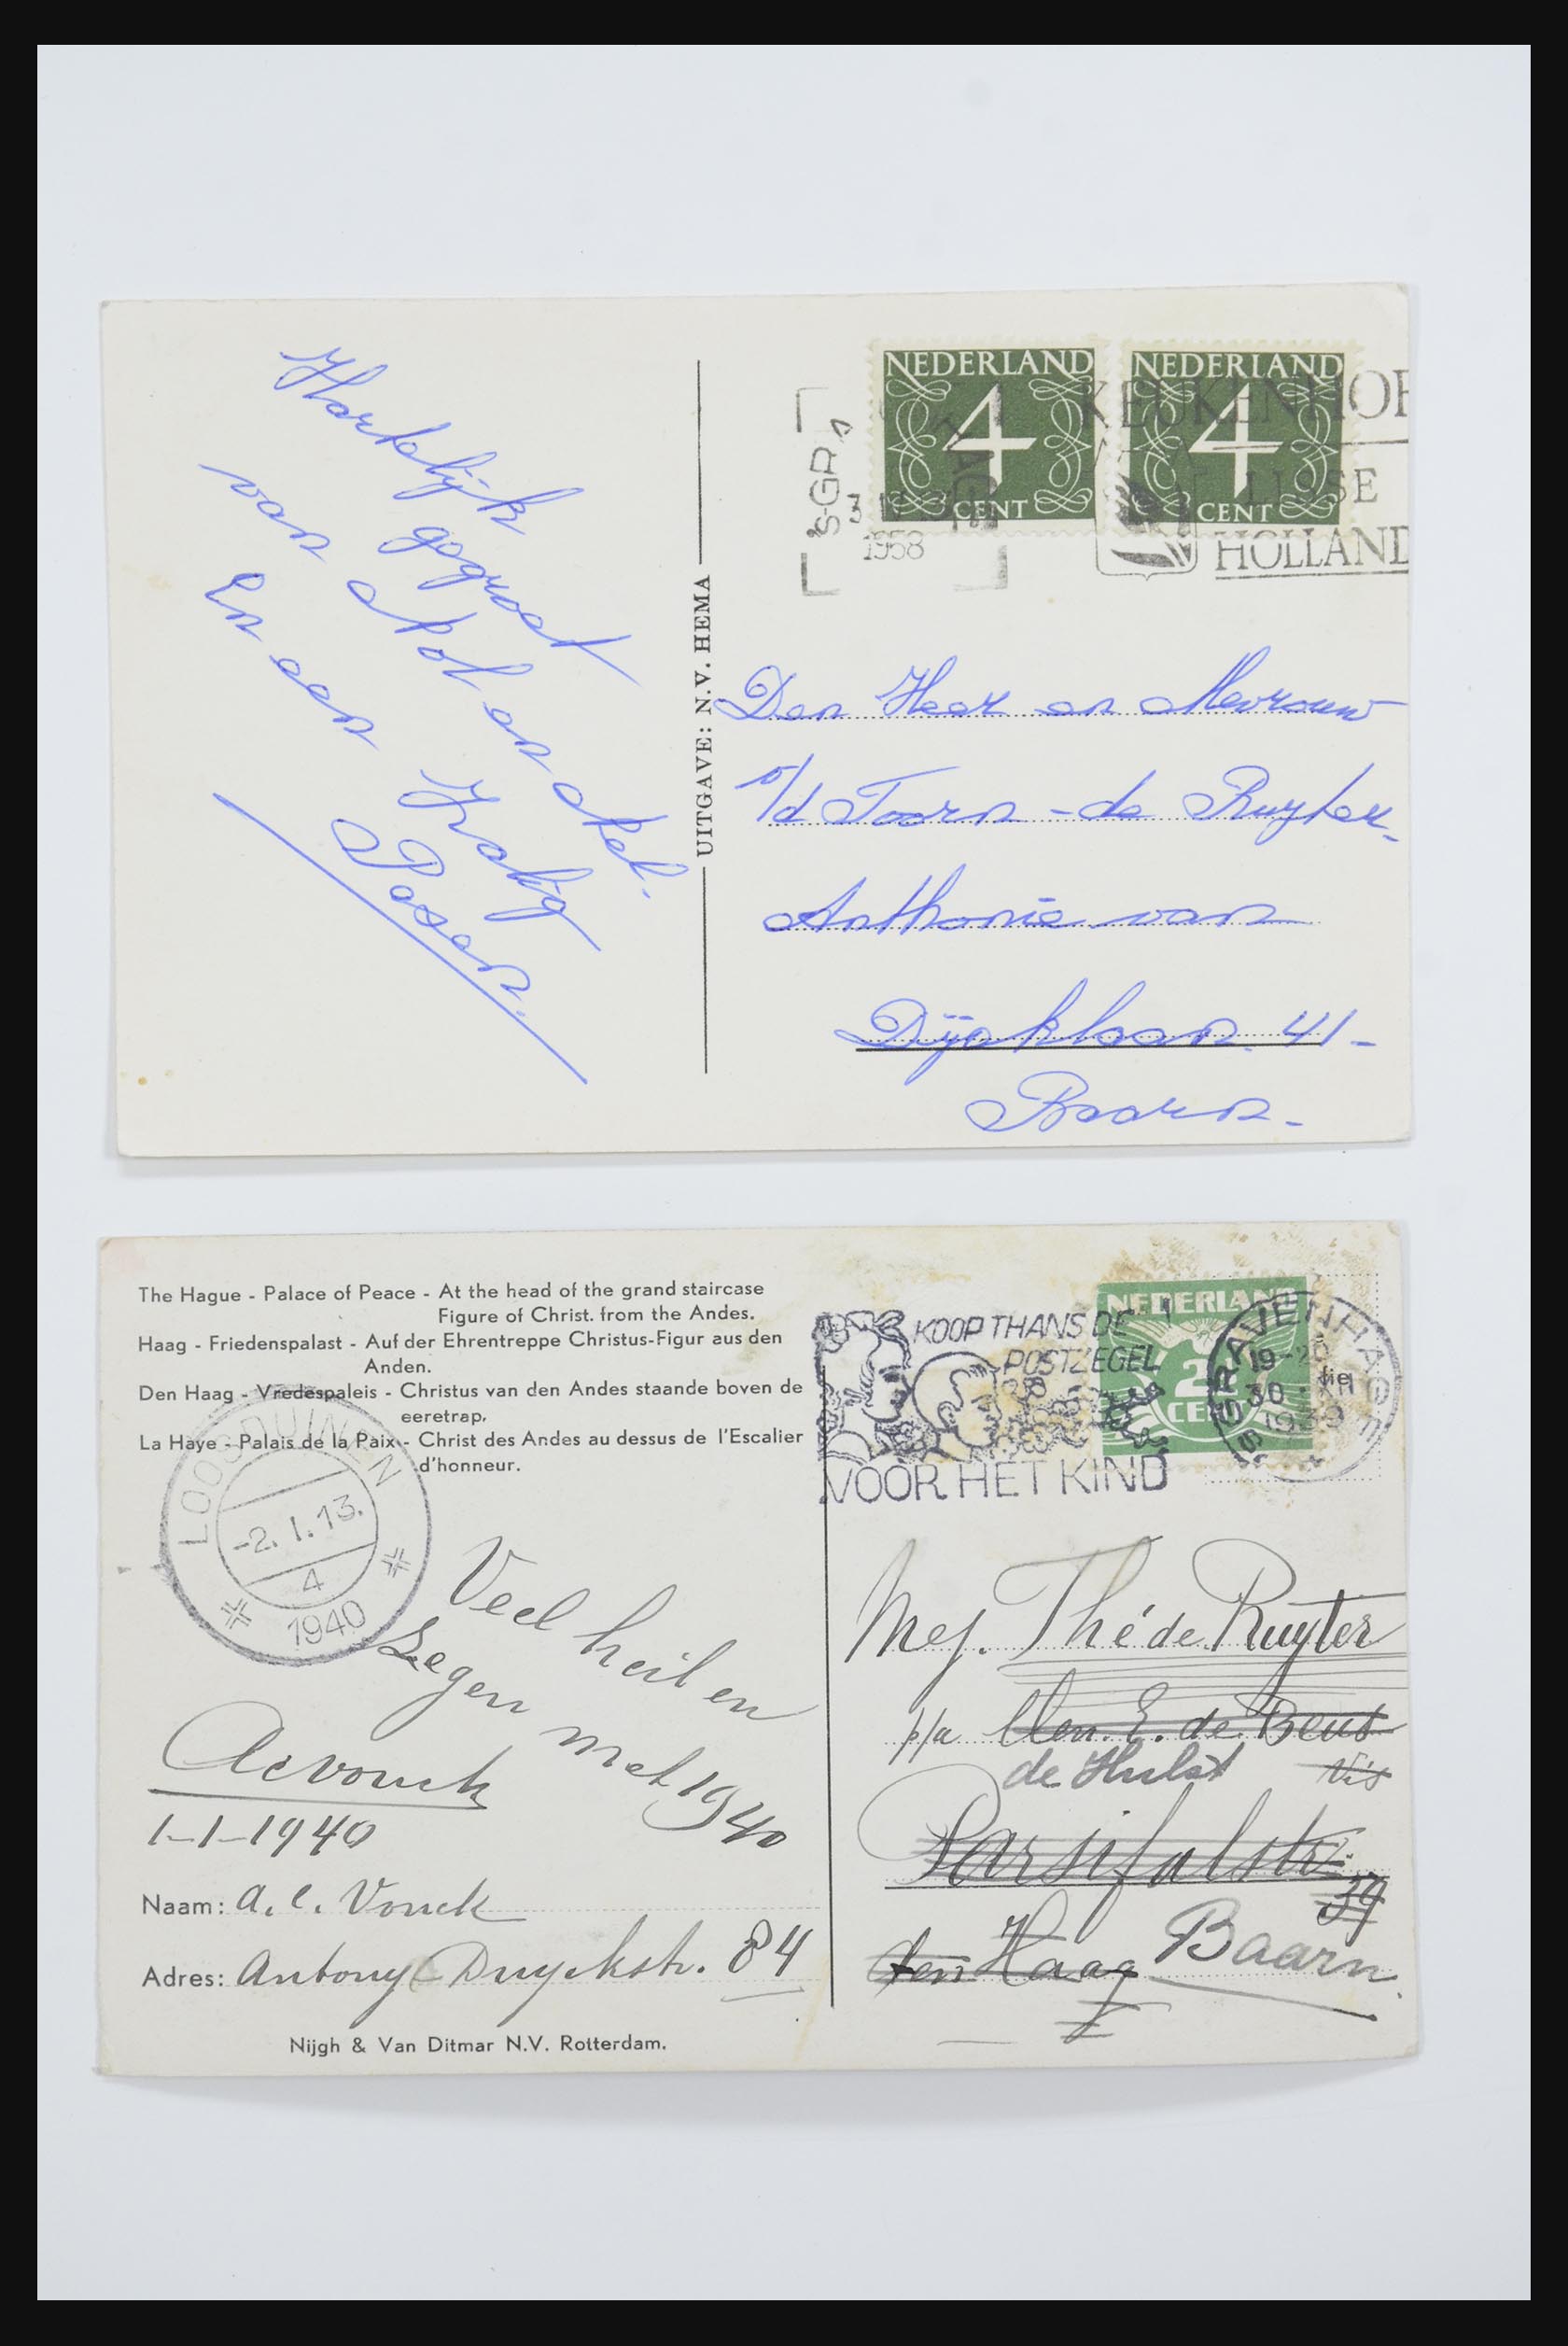 Hartelijk
gegroet
van Kol en Nel.
En een Zalig
Pasen.
UITGAVE: N.V. HEMA
NEDERLAND
4
CENT
NEDERLAND
4
CENT
'S-GRA
1958
KEUKENHOF
LISSE
HOLLAND
Den Heer en Mevrouw
v/d Toorn - de Ruyter -
Anthonie van
Dijcklaan. 41 -
Baarn. -
The Hague - Palace of Peace - At the head of the grand staircase
Figure of Christ. from the Andes.
Haag - Friedenspalast - Auf der Ehrentreppe Christus-Figur aus den
Anden.
Den Haag - Vredespaleis - Christus van den Andes staande boven de
eeretrap.
La Haye - Palais de la Paix - Christ des Andes au dessus de l'Escalier
d'honneur.
LOOSDUINEN
-2. I. 13.
4
1940
Veel heil en
Zegen met 1940
ACVonck
1-1-1940
Naam: A. C. Vonck
Adres: Antony Duyckstr. 84
Nijgh & Van Ditmar N.V. Rotterdam.
KOOP THANS DE
POSTZEGEL
VOOR HET KIND
NEDERLAND
2
CENT
'S GRAVENHAGE
19-20
30 XII
1939
Mej. Thé de Ruyter
p/a E. de Beus
de Hulst
Parsifalstr.
39
den Haag Baarn.